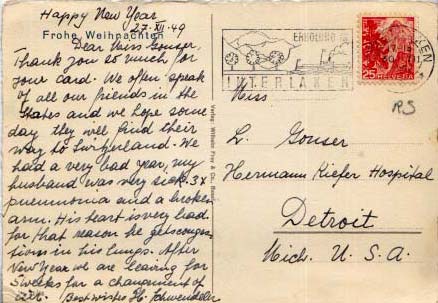 Happy New Year
27. XII. 49
Frohe Weihnachten
Dear Miss Gouser.
Thank you so much for
your Card. We often speak
of all our friends in the
States and we hope some
day they will find their
way to Switzerland. We
had a very bad year, my
husband was very sick. 3x
pneumonia and a broken
arm. His heart is very bad.
for that reason he gets conges-
tions in his lungs. After
New Year we are leaving for
3 weeks for a changement of
air. Best wishes
Verlag: Wilhelm Frey & Co., Basel
ERHOLUNG IN
INTERLAKEN
25 HELVETIA
RS
Miss
L. Gouser
Hermann Kiefer Hospital
Detroit
Mich. U. S. A.